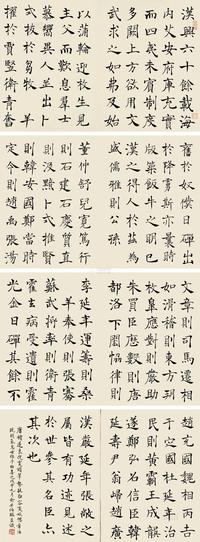 漢興六十餘載海
內艾安府庫充實
而四夷未賓制度
多闕上方欲用文
武求之如弗及始
以蒲輪迎枚生見
主父而歎息群士
慕嚮異人並出卜
式拔於芻牧羊
擢於賈豎衛青奮
奮於奴僕日磾出
於降虜斯亦曩時
版築飯牛之明已
漢之得人於茲為
盛儒雅則公孫
董仲舒兒寬篤行
則石建石慶質直
則汲黯卜式推賢
則韓安國鄭當時
定令則趙禹張湯
文章則司馬遷相
如滑稽則東方朔
枚皋應對則嚴助
朱買臣曆數則唐
都洛下閎恊律則
李延年運籌則桑
羊奉使則張騫
蘇武將率則衛青
霍去病受遺則霍
光金日磾其餘不
趙充國魏相丙吉
于定國杜延年治
民則黃霸王成龔
遂鄭弘召信臣韓
延壽尹翁歸趙廣
漢嚴延年張敞之
屬皆有功迹見述
於世參其名臣亦
其次也